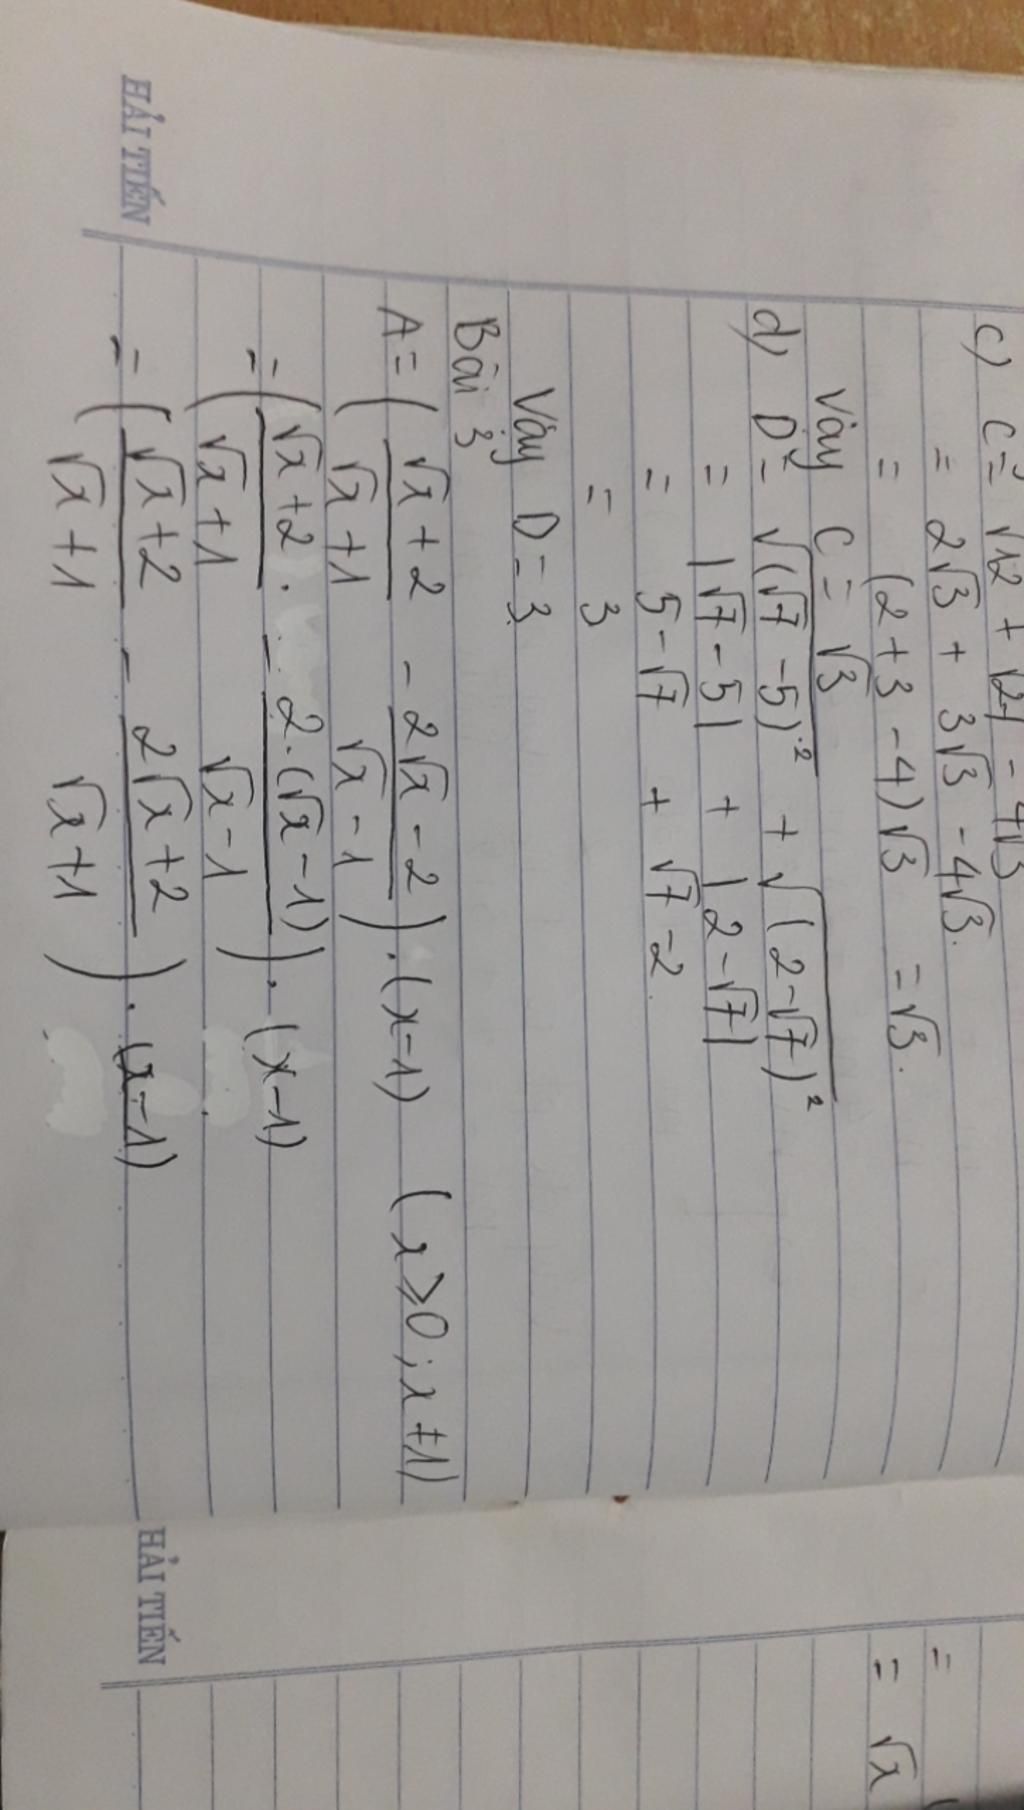 c) C = √12 + √27 - 4√3
= 2√3 + 3√3 - 4√3.
= (2 + 3 - 4)√3 = √3.
Vậy C = √3
d) D = √(√7 - 5)² + √(2 - √7)²
= |√7 - 5| + |2 - √7|
= 5 - √7 + √7 - 2
= 3
Vậy D = 3
Bài 3
A = ( (√x + 2)/(√x + 1) - (2√x - 2)/(√x - 1) ) . (x - 1) (x ≥ 0 ; x ≠ 1)
= ( (√x + 2)/(√x + 1) - (2.(√x - 1))/(√x - 1) ) . (x - 1)
= ( (√x + 2)/(√x + 1) - (2√x + 2)/(√x + 1) ) . (x - 1)
HẢI TIẾN
=
= √x
HẢI TIẾN